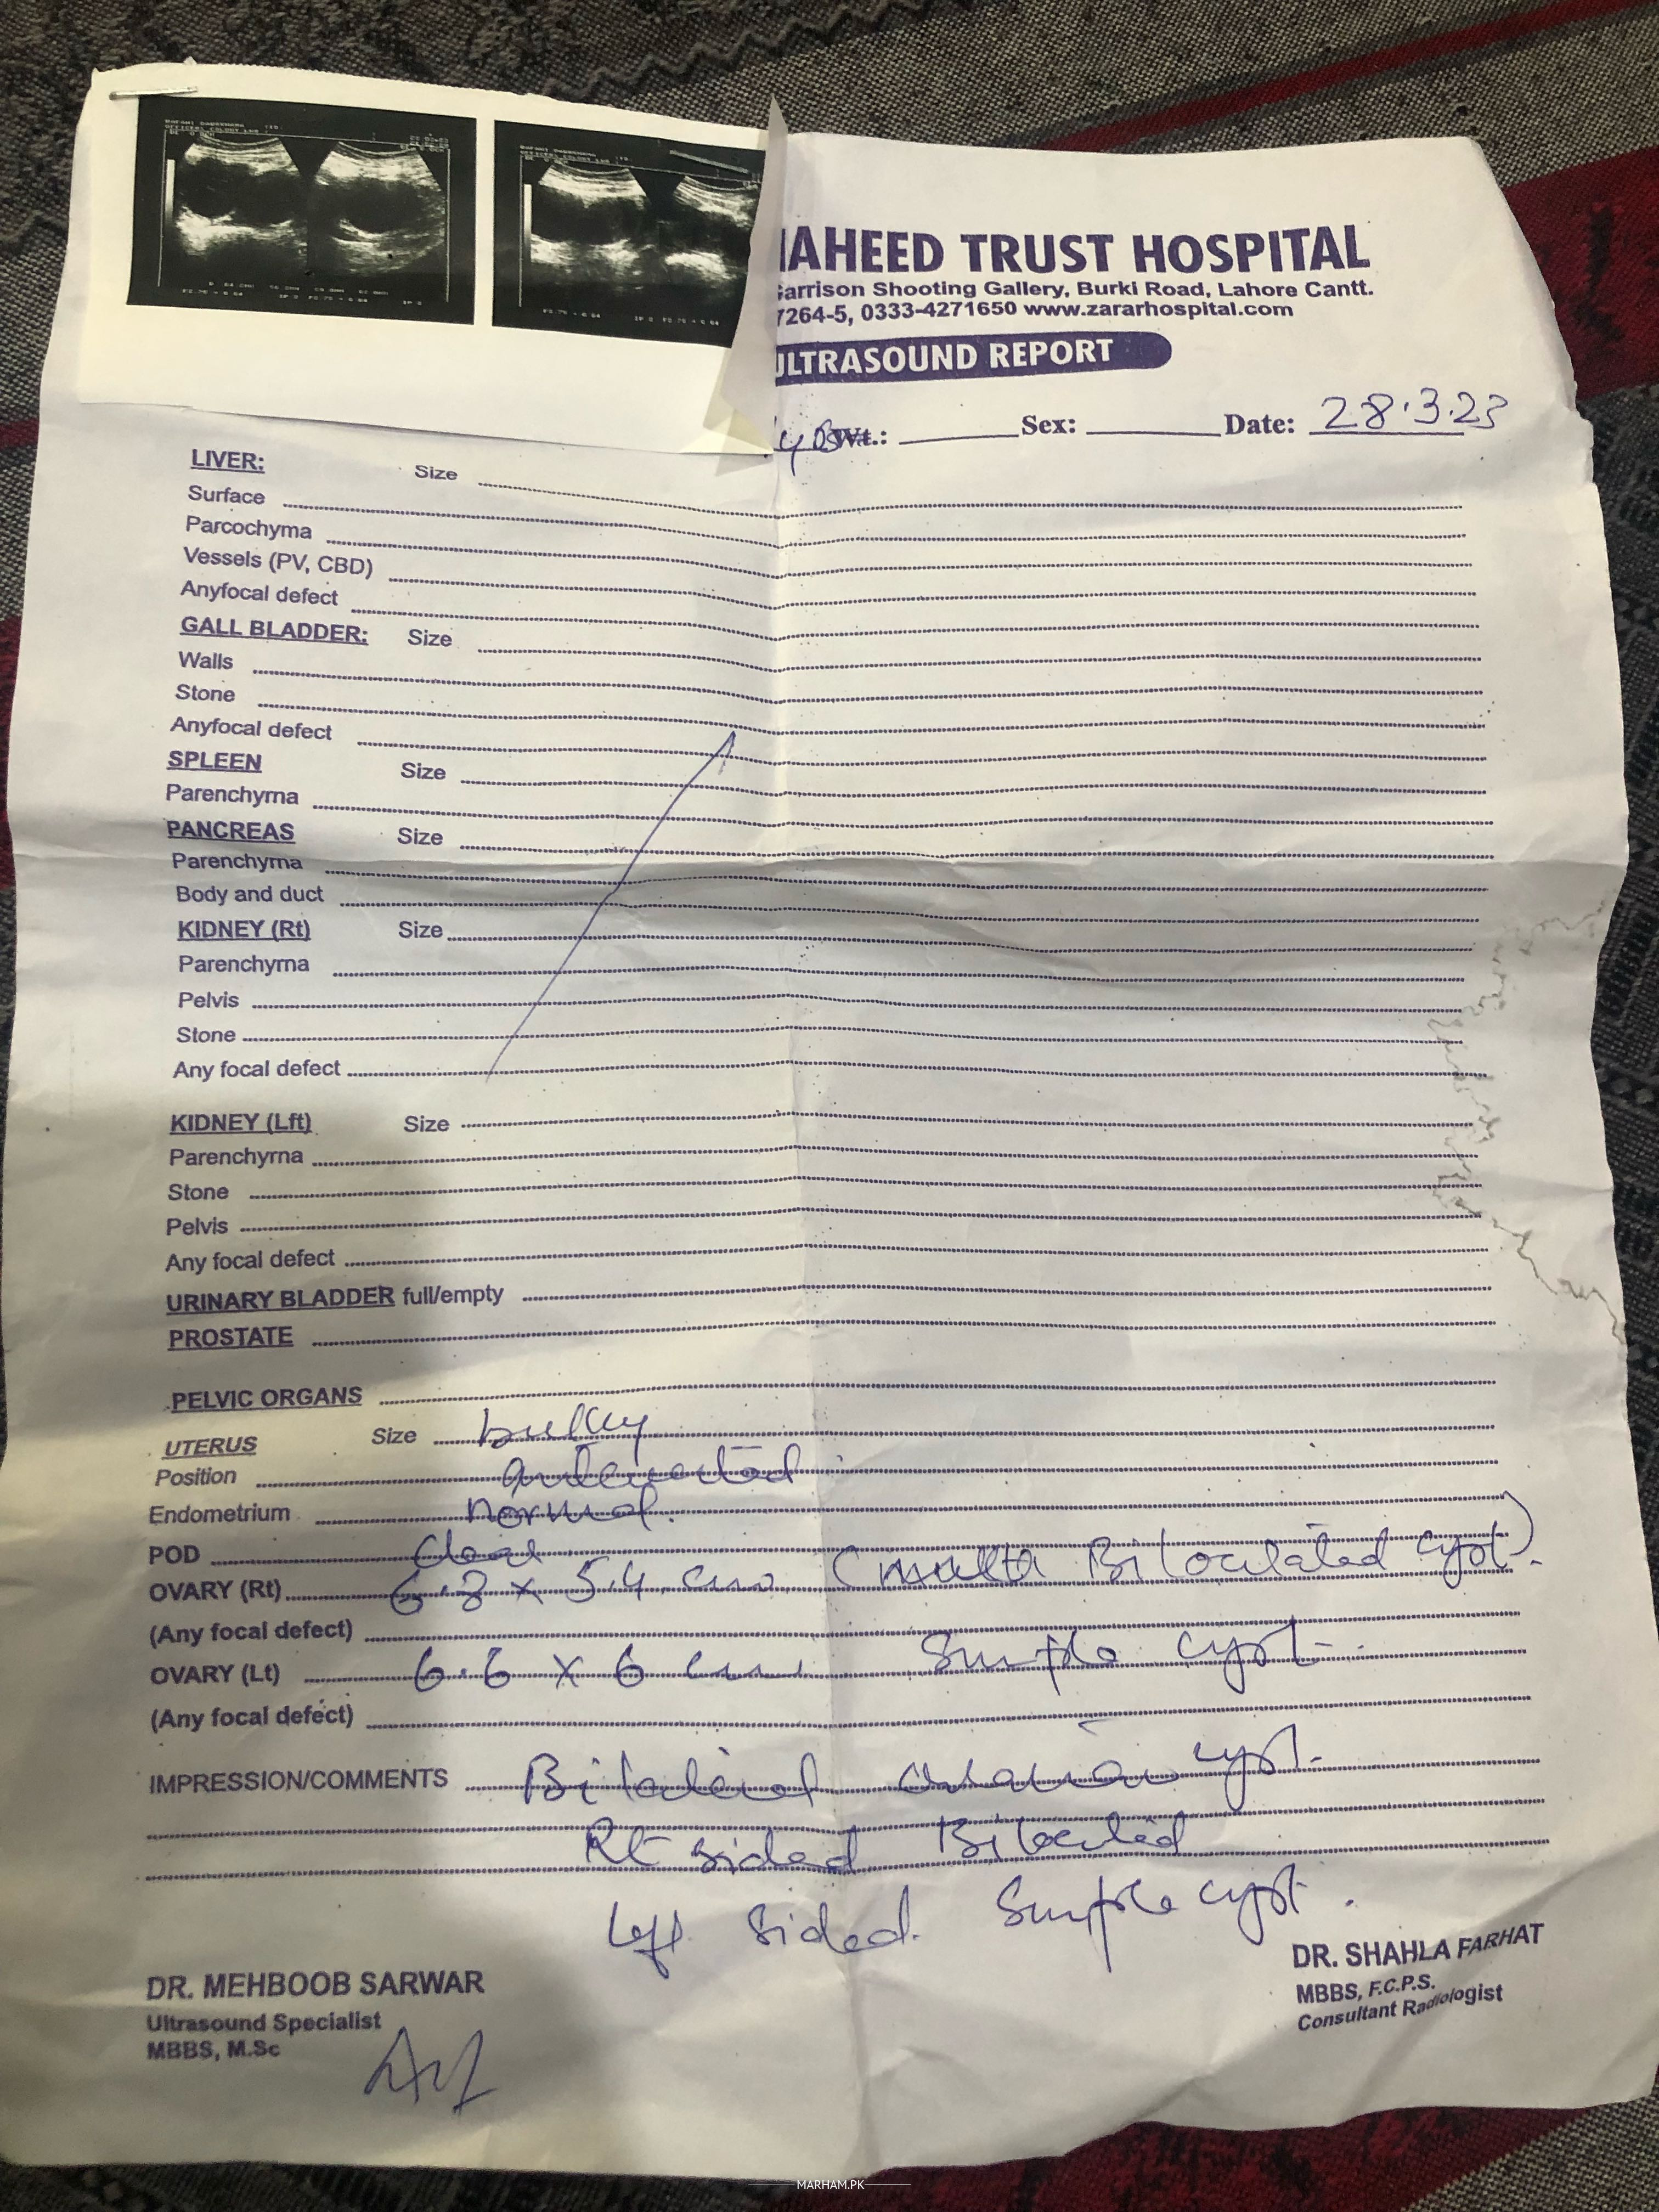 AHEED TRUST HOSPITAL
Garrison Shooting Gallery, Burki Road, Lahore Cantt.
7264-5, 0333-4271650 www.zararhospital.com
ULTRASOUND REPORT
Wt.: Sex: Date: 28.3.23
LIVER: Size
Surface
Parcochyma
Vessels (PV, CBD)
Anyfocal defect
GALL BLADDER: Size
Walls
Stone
Anyfocal defect
SPLEEN Size
Parenchyrna
PANCREAS Size
Parenchyrna
Body and duct
KIDNEY (Rt) Size
Parenchyrna
Pelvis
Stone
Any focal defect
KIDNEY (Lft) Size
Parenchyrna
Stone
Pelvis
Any focal defect
URINARY BLADDER full/empty
PROSTATE
PELVIC ORGANS
UTERUS Size bulky
Position anteverted
Endometrium normal.
POD Clear
OVARY (Rt) 6.8 x 5.4 cm ( Biloculated cyst)
(Any focal defect)
OVARY (Lt) 6.6 x 6 cm Simple cyst
(Any focal defect)
IMPRESSION/COMMENTS Bilateral ovarian cyst.
Rt sided Bilocculated
Left sided. Simple cyst.
DR. MEHBOOB SARWAR
Ultrasound Specialist
MBBS, M.Sc
DR. SHAHLA FARHAT
MBBS, F.C.P.S.
Consultant Radiologist
MARHAM.PK